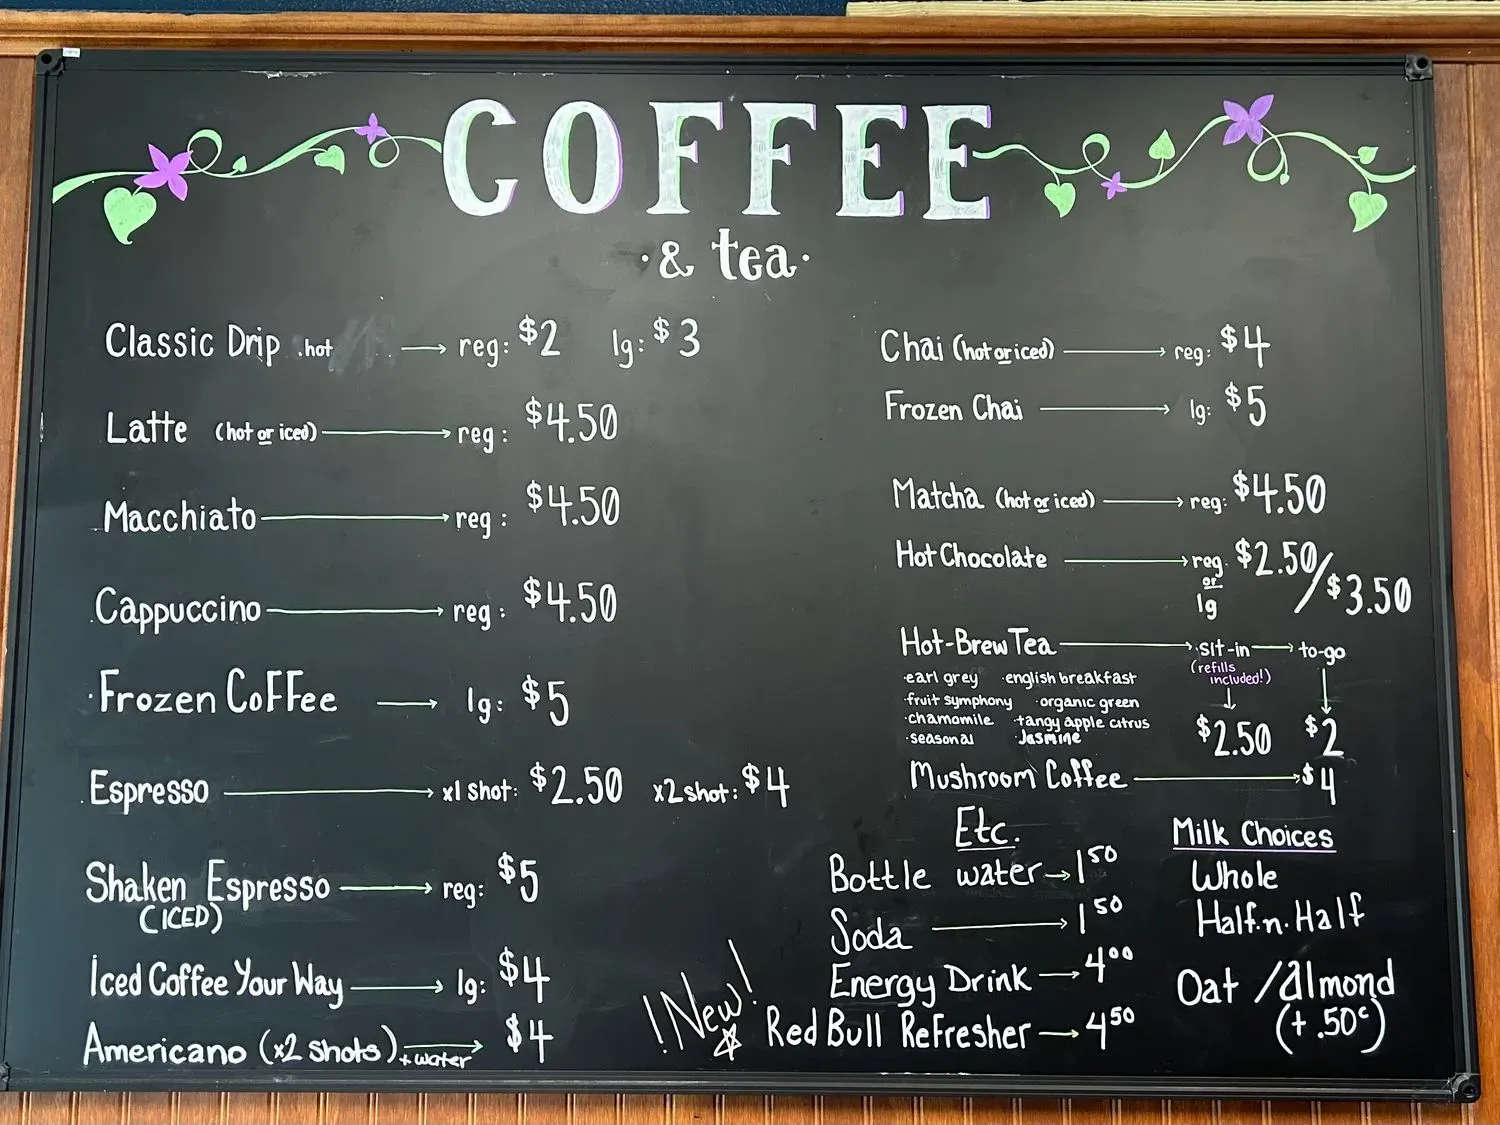 COFFEE
· & tea ·
Classic Drip . hot → reg: $2 lg: $3
Latte (hot or iced) → reg: $4.50
Macchiato → reg: $4.50
Cappuccino → reg: $4.50
· Frozen CoFFee → lg: $5
Espresso → x1 shot: $2.50 x2 shot: $4
Shaken Espresso → reg: $5
(ICED)
Iced Coffee Your Way → lg: $4
Americano (x2 shots) + water → $4
Chai (hot or iced) → reg: $4
Frozen Chai → lg: $5
Matcha (hot or iced) → reg: $4.50
Hot Chocolate → reg. $2.50/$3.50
or
lg
Hot-Brew Tea → sit-in → to-go
(refills
included!)
· earl grey · english breakfast
· fruit symphony · organic green
· chamomile · tangy apple citrus
· seasonal · Jasmine
$2.50 $2
Mushroom Coffee → $4
Etc.
Bottle water → 1 50
Soda → 1 50
Energy Drink → 4 00
! New! Red Bull Refresher → 4 50
Milk Choices
Whole
Half.n.Half
Oat / almond
(+ .50¢)